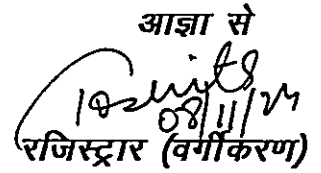 आज्ञा से
08/11/24
रजिस्ट्रार (वर्गीकरण)